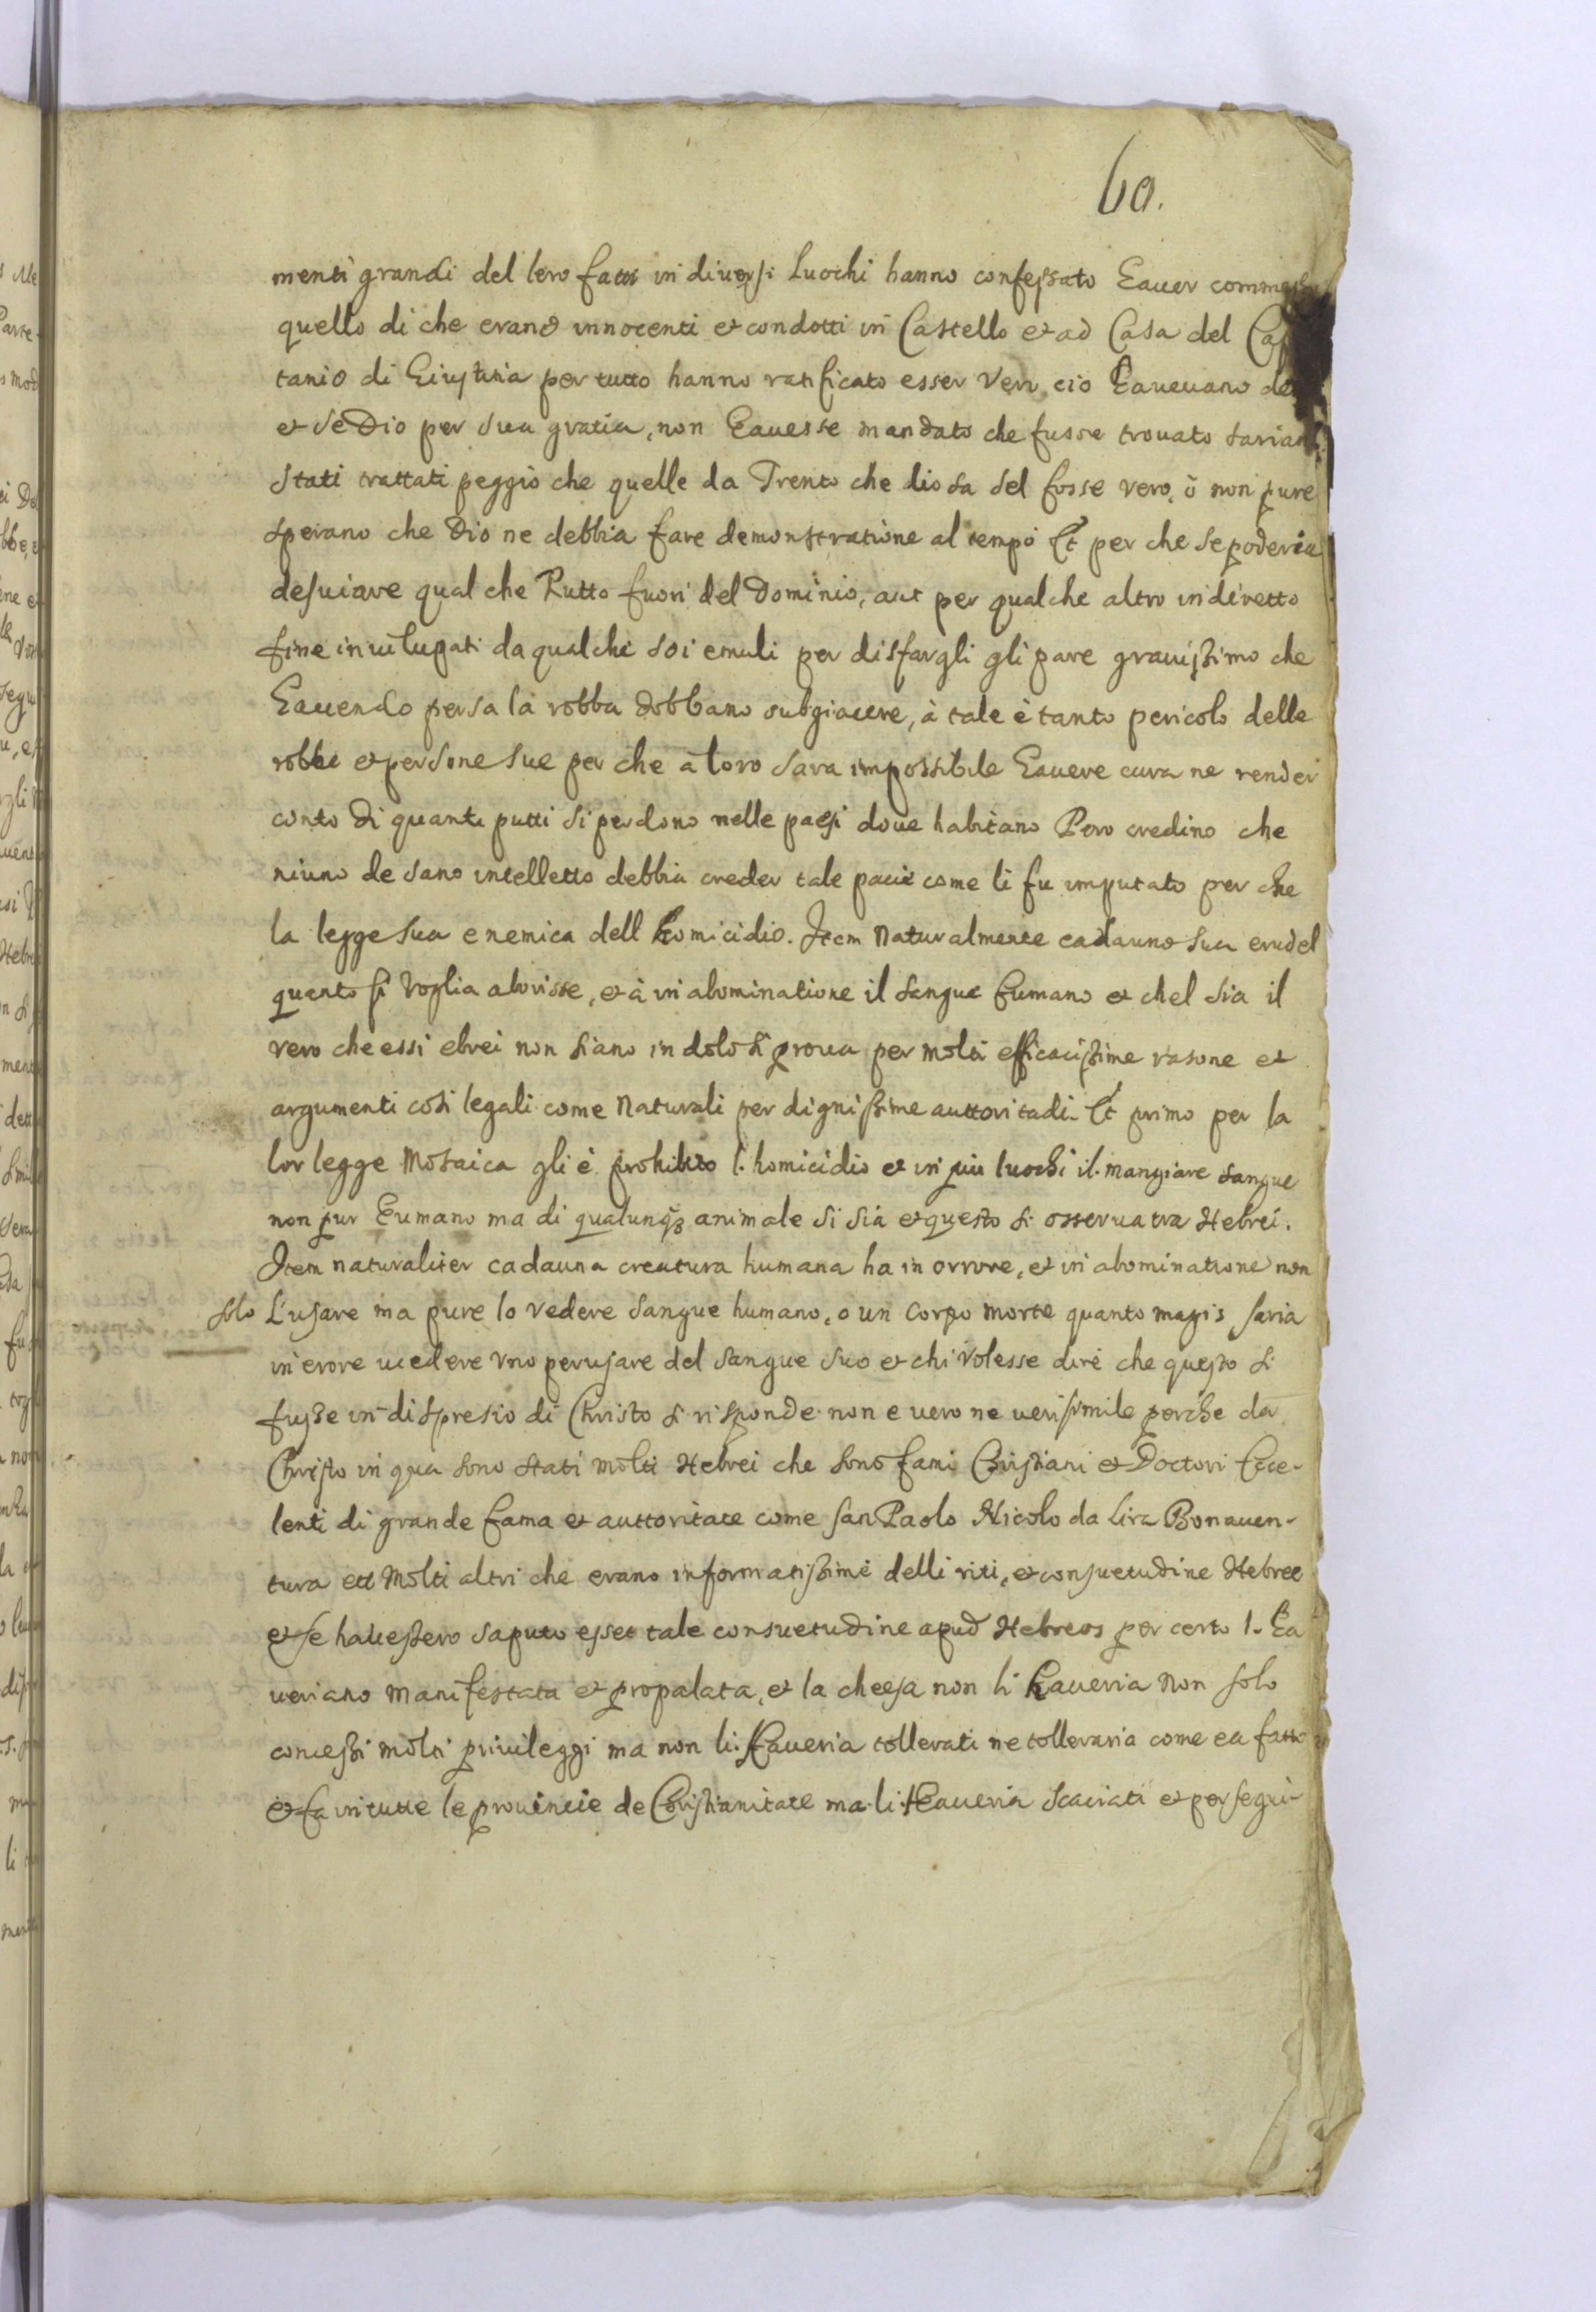 60.
menti grandi del loro fatti in diversi luochi hanno confessato haver commesso
quello di che erano innocenti et condotti in Castello et ad Casa del Cap
tanio di Giustitia per tutto hanno ratificato esser vero cio havevano de
et se Dio per sua gratia, non havesse mandato che fusse trovato sarian
stati trattati peggio che quelle da Trento che Dio sa sel fosse vero, ò non pure
sperano che Dio ne debbia fare demonstratione al tempo Et per che se poderia
desuiare qual che Putto fuori del Dominio, aut per qualche altro indiretto
fine invilupati da qualche soi emuli per disfargli gli pare gravissimo che
havendo persa la robba dobbano subgiacere, à tale è tanto pericolo delle
robbe et persone sue per che a loro sara impossibile havere cura ne render
conto di quanti putti si perdono nelle paesi dove habitano Pero credino che
niuno de sano intelletto debbia creder tale pacie come li fu imputato per che
la legge sua e nemica dell homicidio. Item Naturalmente cadauno sua crudel
quanto si voglia aborisse, et à in abominatione il sangue humano et chel sia il
vero che essi ebrei non siano in dolo si prova per molti efficacissime rasone et
argumenti cosi legali come Naturali per dignissime auttoritadi. Et primo per la
lor legge Mosaica gli è prohibito l. homicidio et in piu luochi il mangiare sangue
non pur humano ma di qualunq3 animale si sia et questo si osserva tra Hebrei.
Item naturaliter cadauna creatura humana ha in orrore, et in abominatione non
solo L'usare ma pure lo vedere sangue humano, o un corpo morte quanto magis saria
in erore ucedere uno per usare del sangue suo et chi volesse dire che questo si
fusse in dispresio di Christo si risponde non e vero ne verisimile perche da
Christo in qua sono stati molti Hebrei che sono fami Christiani et Doctori Ecce-
lenti di grande fama et auttoritate come san Paolo Nicolo da lira Bonaven-
tura ett molti altri che erano informatissime delli riti, et consuetudine Hebree
et se havessero saputo esser tale consuetudine apud Hebreos per certo l. ha
veriano manifestata et propalata, et la cheesa non li haveria non solo
concessi molti privileggi ma non li haveria tollerati ne tolleraria come ea fatto
et fa in tutte le provincie de Christianitate ma li haveria scaciati et persegui-